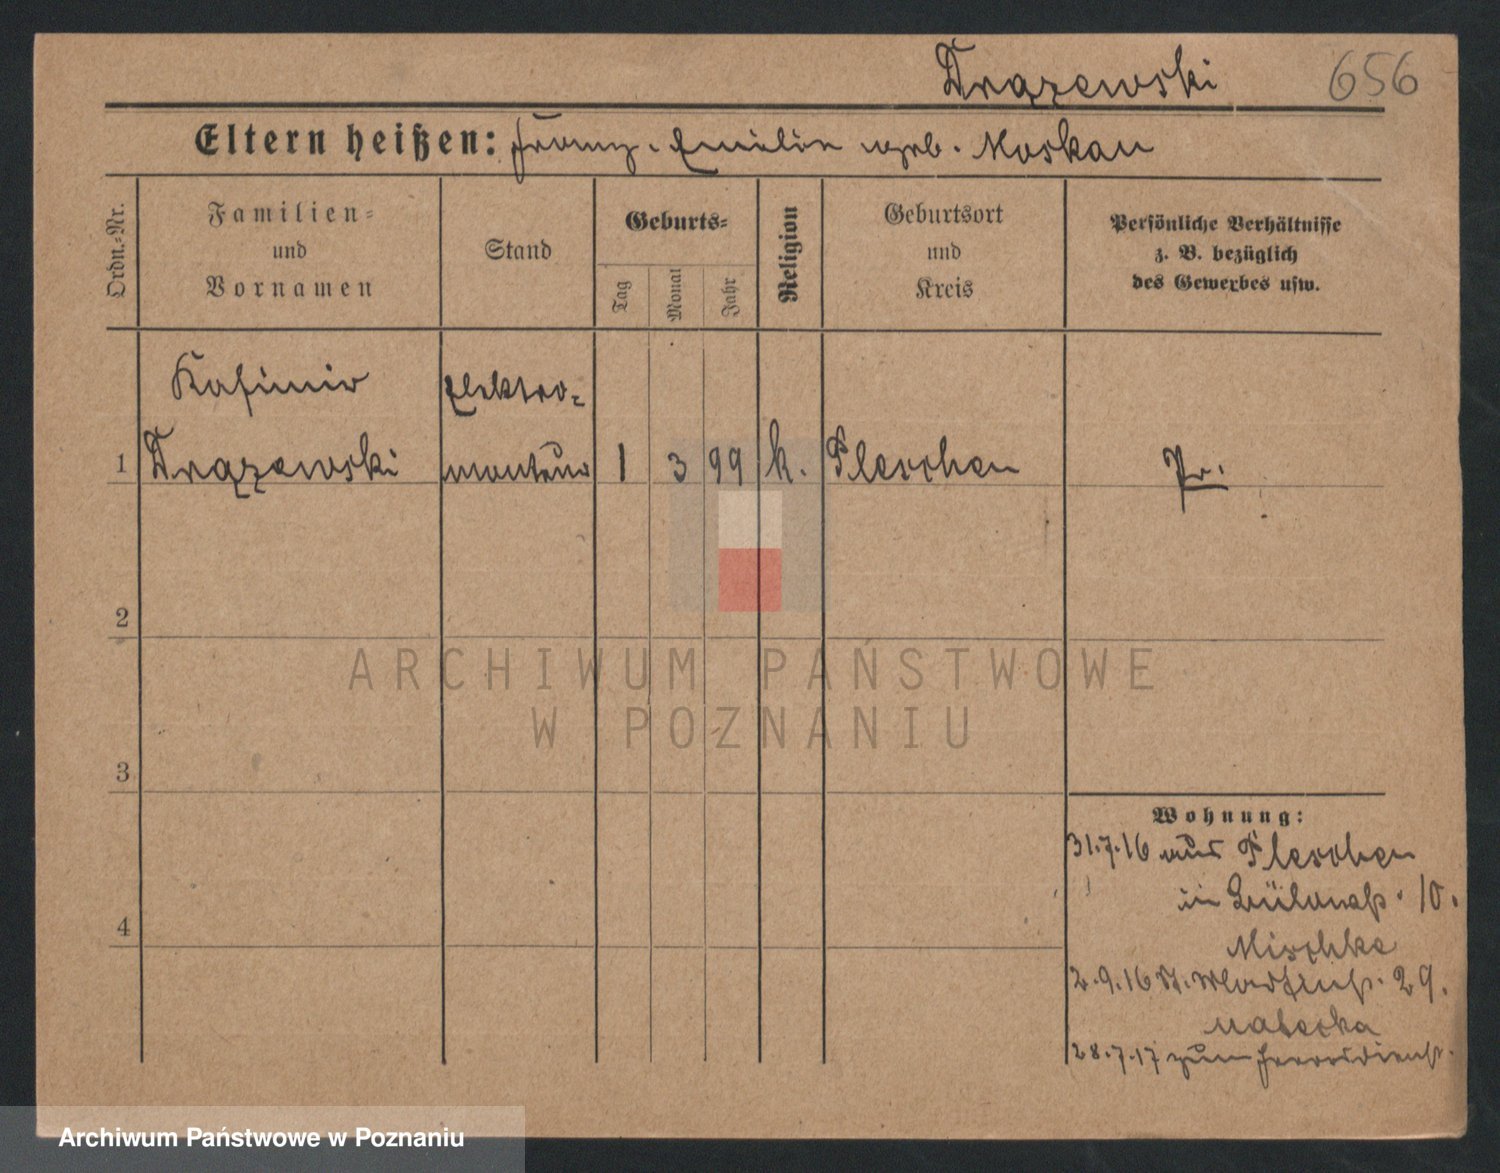 Drążewski 656
Eltern heißen: Franz. Emilie geb. Moskau
Ordn.=Nr.
Familien=
und
Vornamen
Stand
Geburts=
Tag
Monat
Jahr
Religion
Geburtsort
und
Kreis
Persönliche Verhältnisse
z. B. bezüglich
des Gewerbes usw.
Kasimir Elektro-
1 Drążewski monteur 1 3 99 k. Pleschen Pr.
2
3
4
Wohnung:
31.7.16 aus Pleschen
in 10.
Mischke
2.9.16 St. Martinstr. 29.
28.7.17 zum Heeresdienst.
ARCHIWUM PAŃSTWOWE
W POZNANIU
Archiwum Państwowe w Poznaniu